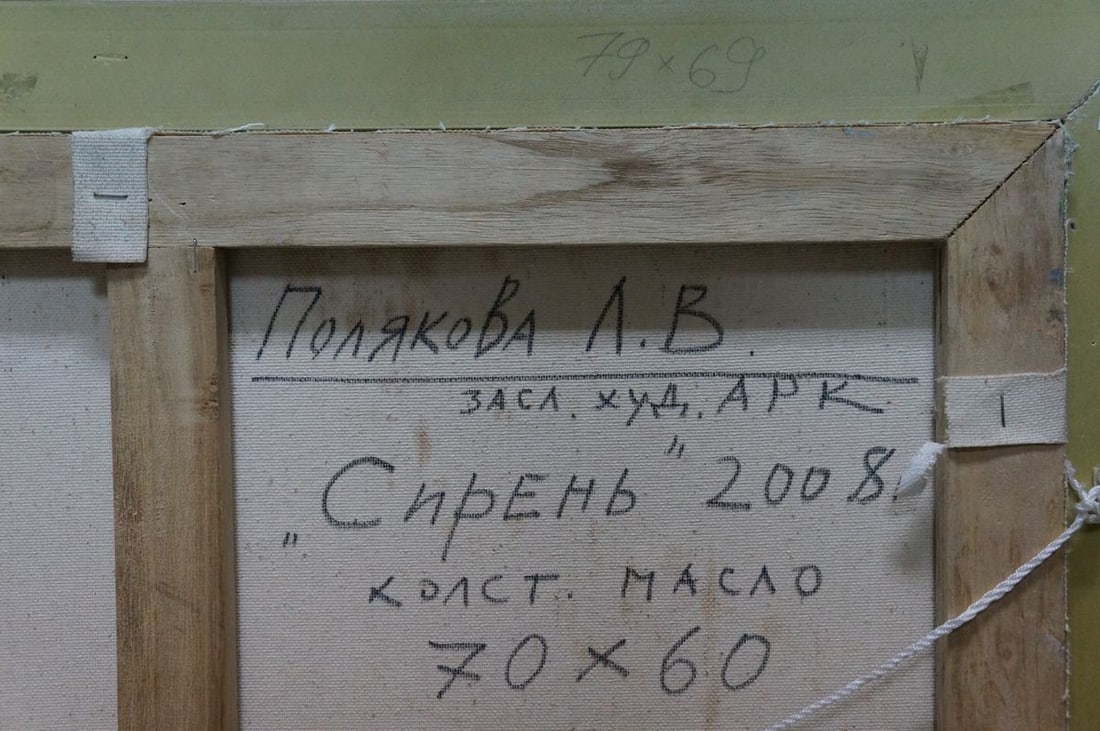 79 × 69
Полякова Л. В.
засл. худ. АРК
„Сирень" 2008.
холст. масло
70 × 60